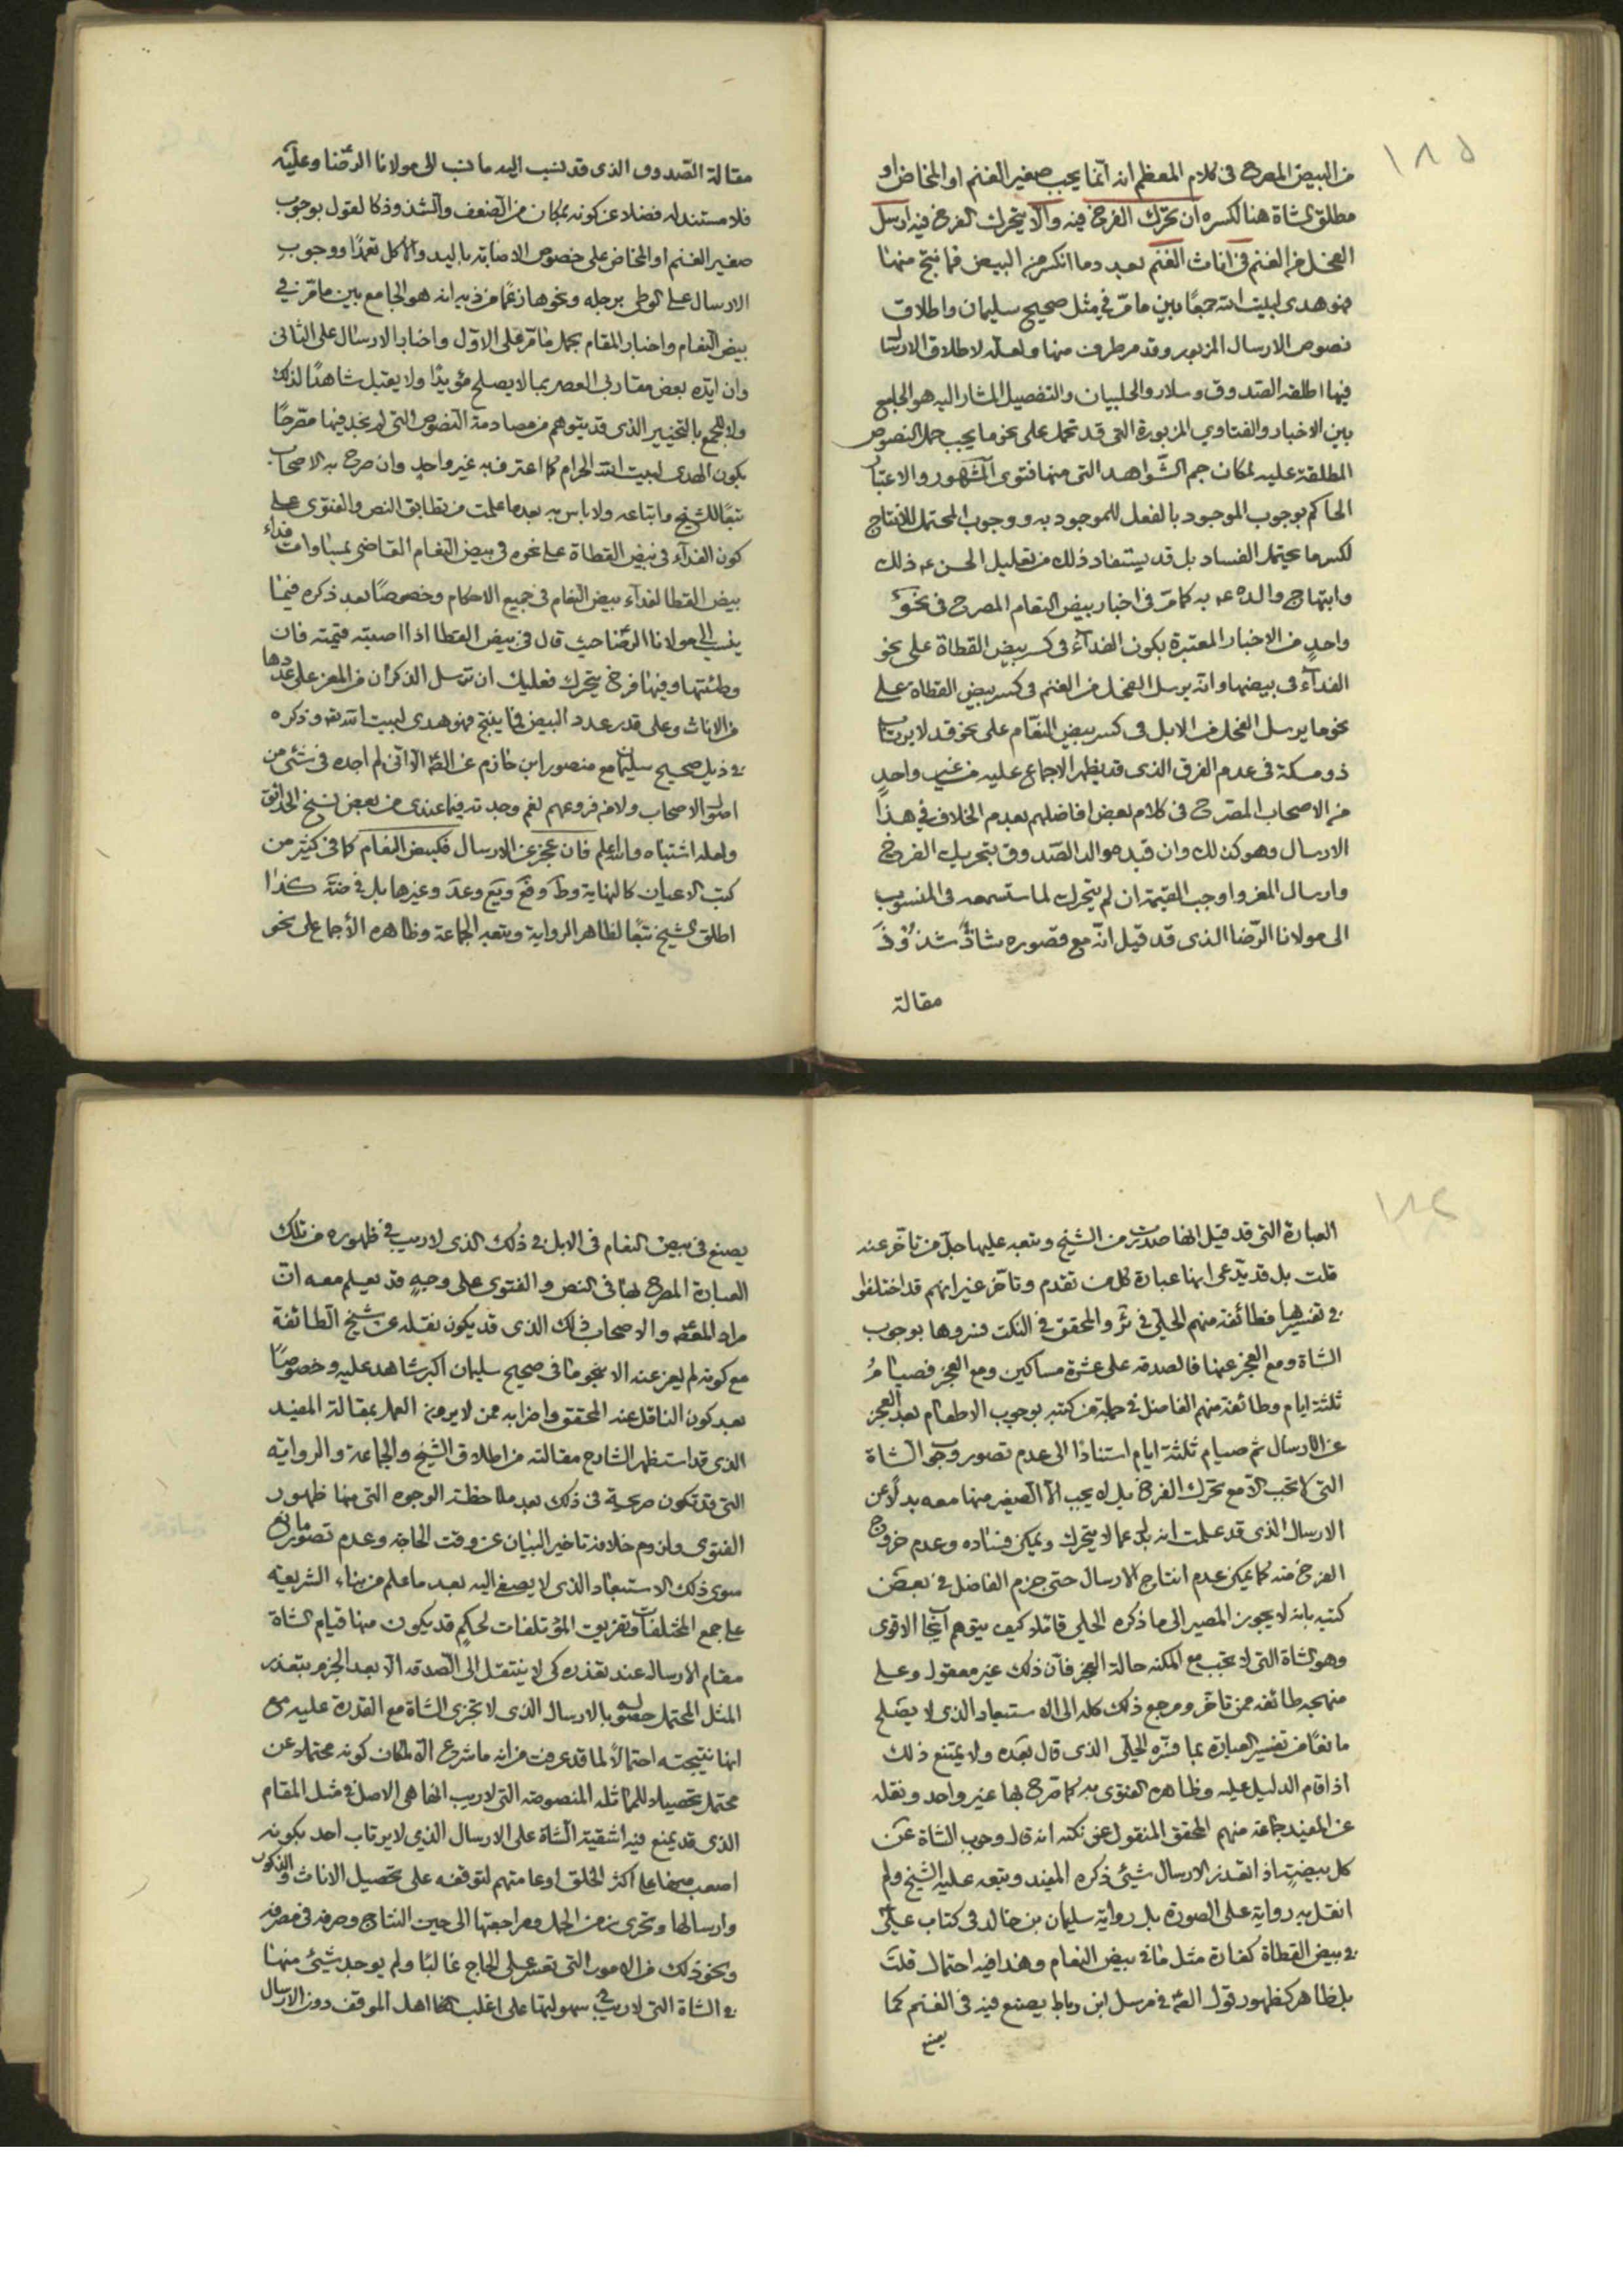 ١٨٥
من البيض المصرح فى كلام المعظم انه انما يجب صغير الغنم او المخاض او
مطلق الشاة هنا لكسره ان تحرك الفرخ فيه والا يتحرك الفرخ فيه ارسل
الفحل من الغنم فى اناث الغنم بعدد ما انكسر من البيض فما نتج منها
فهو هدى لبيت الله جمعًا بين ما مرّ فى مثل صحيح سليمان واطلاق
نصوص الارسال المزبور وقد مر طرف منها ولعله لاطلاق الارسال
فيها اطلقه الصدوق وسلار والحلبيان والتفصيل المشار اليه هو الجامع
بين الاخبار والفتاوي المزبورة التى قد تحمل على نحو ما يجب حمل النصوص
المطلقة عليه لمكان جم الشواهد التى منها فتوى المشهور والاعتبار
الحاكم بوجوب الموجود بالفعل للموجود به ووجوب المحتمل للانتاج
لكسر ما يحتمل الفساد بل قد يستفاد ذلك من تعليل الحسن ع ذلك
وابتهاج والده ع به كما مرّ فى اخبار بيض النعام المصرح فى نحو
واحدٍ من الاخبار المعتبرة بكون الفداء فى كسر بيض القطاة على نحو
الفداء فى بيضها وانه يرسل الفحل من الغنم فى كسر بيض القطاة على
نحو ما يرسل الفحل من الابل فى كسر بيض النعام على نحو قد لا يرتاب
ذو مسكة فى عدم الفرق الذى قد يظهر الاجماع عليه من غير واحدٍ
من الاصحاب المصرح فى كلام بعض افاضلهم بعدم الخلاف فى هذا
الارسال وهو كذلك وان قيد والد الصدوق بتحريك الفرخ
وارسال المعز واوجب القيمة ان لم يتحرك لما ستسمعه فى المنسوب
الى مولانا الرّضا الذى قد قيل انّه مع قصوره شاذٌّ شذوذَ
مقالة
مقالة الصّدوق الذى قد نسب اليه ما نسب الى مولانا الرضا وعليه
فلا مستند له فضلا عن كونه بمكان من الضعف والشذوذ كالقول بوجوب
صغير الغنم او المخاض على خصوص الاصابة باليد والاكل تعمدًا ووجوب
الارسال على الوطى برجله ونحوها زعمًا من ذيه انه هو الجامع بين ما مرّ فى
بيض النعام واخبار المقام بحمل ما مرّ على الاوّل واخبار الارسال على الثانى
وان ايّده بعض مقاربى العصر بما لا يصلح مؤيدًا ولا يقبل شاهدًا لذلك
ولا للجمع بالتخيير الذى قد يتوهم من مصادمة النصوص التى لم نجد فيها مصرحًا
بكون الهدى لبيت الله الحرام كما اعترف به غير واحدٍ وان صرح به الاصحاب
تبعًا للشيخ واتباعه ولا باس به بعد ما علمت من تطابق النص والفتوى على
كون الفداء فى بيض القطاة على نحوه فى بيض النعام القاضى بمساوات فداء
بيض القطا لفداء بيض النعام فى جميع الاحكام وخصوصًا بعد ذكره فيما
ينسب الى مولانا الرضا حيث قال فى بيض القطا اذا اصبته قيمته فان
وطئتها وفيها فرخ يتحرك فعليك ان ترسل الذكران من المعز على عددها
من الاناث وعلى قدر عدد البيض فما ينتج فهو هدى لبيت الله تعه وذكره
فى ذيل صحيح سليمان مع منصور ابن حازم عن الصّ الآتى لم اجده فى شئ من
اصول الاصحاب ولا من فروعهم نعم وجدته فيما عندى من بعض نسخ الحدائق
ولعله اشتباه والله اعلم فان عجز عن الارسال فكبيض النعام كما فى كثير من
كتب الاعيان كالنهاية وط وفع ويع وعد وغيرها بل فى ضه كذا
اطلق الشيخ تبعًا لظاهر الرواية وتبعه الجماعة وظاهره الاجماع على نحو
١٨٦
العبارة التى قد قيل انها صدرت من الشيخ وتبعه عليها جلّ من تاخّر عنه
قلت بل قد يدّعى انها عبارة كل من تقدم وتاخر غير انهم قد اختلفوا
فى تفسيرها فطائفة منهم الحلّى فى ئر والمحقق فى النكت فسروها بوجوب
الشاة ومع العجز عنها فالصدقه على عشرة مساكين ومع العجز فصيامُ
ثلثة ايام وطائفة منهم الفاضل فى جملة من كتبه بوجوب الاطعام بعد العجز
عن الارسال ثم صيام ثلثة ايام استنادًا الى عدم تصور وجوب الشاة
التى لا تجب الّا مع تحرك الفرخ بل لا يجب الّا الصغير منها معه بدلًا عن
الارسال الذى قد علمت انه بدل عما لا يتحرك ويمكن فساده وعدم خروج
الفرخ منه كما يمكن عدم انتاج الارسال حتى جزم الفاضل فى بعض
كتبه بانه لا يجوز المصير الى ما ذكره الحلى قائلا كيف يتوهم ايجاب الاقوى
وهو الشاة التى لا تجب مع المكنه حالة العجز فان ذلك غير معقول وعلى
منهجه طائفه ممن تاخّر ومرجع ذلك كله الى الاستبعاد الذى لا يصلح
مانعًا من تفسير العبارة بما فسّره الحلّى الذى قال بعده ولا يمتنع ذلك
اذا قام الدليل عليه وظاهره الفتوى به كما صرح بها غير واحد ونقله
عن المفيد جماعة منهم المحقق المنقول عن نكته انه قال وجوب الشاة عن
كل بيضةٍ اذا تعذر الارسال شئ ذكره المفيد وتبعه عليه الشيخ ولم
انقل به رواية على الصورة بل رواية سليمان بن خالد فى كتاب علىّ
فى بيض القطاة كفارة مثل ما فى بيض النعام وهذا فيه احتمال قلت
بل ظاهر كظهور قول الصّ فى مرسل ابن رباط يصنع فيه فى الغنم كما
يصنع
يصنع فى بيض النعام فى الابل فى ذلك الذى لا ريب فى ظهوره من تلك
العبارة المصرح بها فى النص والفتوى على وجهٍ قد يعلم معه ان
مراد المعظم والاصحاب ذلك الذى قد يكون نقله عن شيخ الطائفة
مع كونه لم يعز عنه الا نحو ما فى صحيح سليمان اكبر شاهد عليه وخصوصًا
بعد كون الناقل عنه المحقق واضرابه ممن لا يرون العمل بمقالة المفيد
الذى قد استظهر الشارح مقالته من اطلاق الشيخ والجماعة والرواية
التى قد تكون صريحة فى ذلك بعد ملاحظة الوجوه التى منها ظهور
الفتوى ولزوم خلافه تاخير البيان عن وقت الحاجة وعدم تصور مانع
سوى ذلك الاستبعاد الذى لا يصغى اليه بعد ما علم من بناء الشريعة
على جمع المختلفات وتفريق المؤتلفات لحكمٍ قد يكون منها قيام الشاة
مقام الارسال عند تعذره كى لا ينتقل الى الصدقه الّا بعد الجزم بتعذر
المثل المحتمل حصوله بالارسال الذى لا تجزى الشاة مع القدرة عليه مع
انها نتيجته احتمالًا لما قد عرفت من انه ما شرع الّا لمكان كونه محتملا عن
محتمل تحصيلا للمماثله المنصوصه التى لا ريب انها هى الاصل فى مثل المقام
الذى قد يمنع فيه اشقية الشاة على الارسال الذي لا يرتاب احد بكونه
اصعب منها على اكثر الخلق او عامتهم لتوقفه على تحصيل الاناث والذكور
وارسالها وتحرى زمن الحمل ومراجعتها الى حين النتاج وصرفه فى مصرفه
ونحو ذلك من الامور التى تعسر على الحاج غالبًا ولم يوجد شئ منها
فى الشاة التى لا ريب فى سهولتها على اغلب اهل الموقف دون الارسال